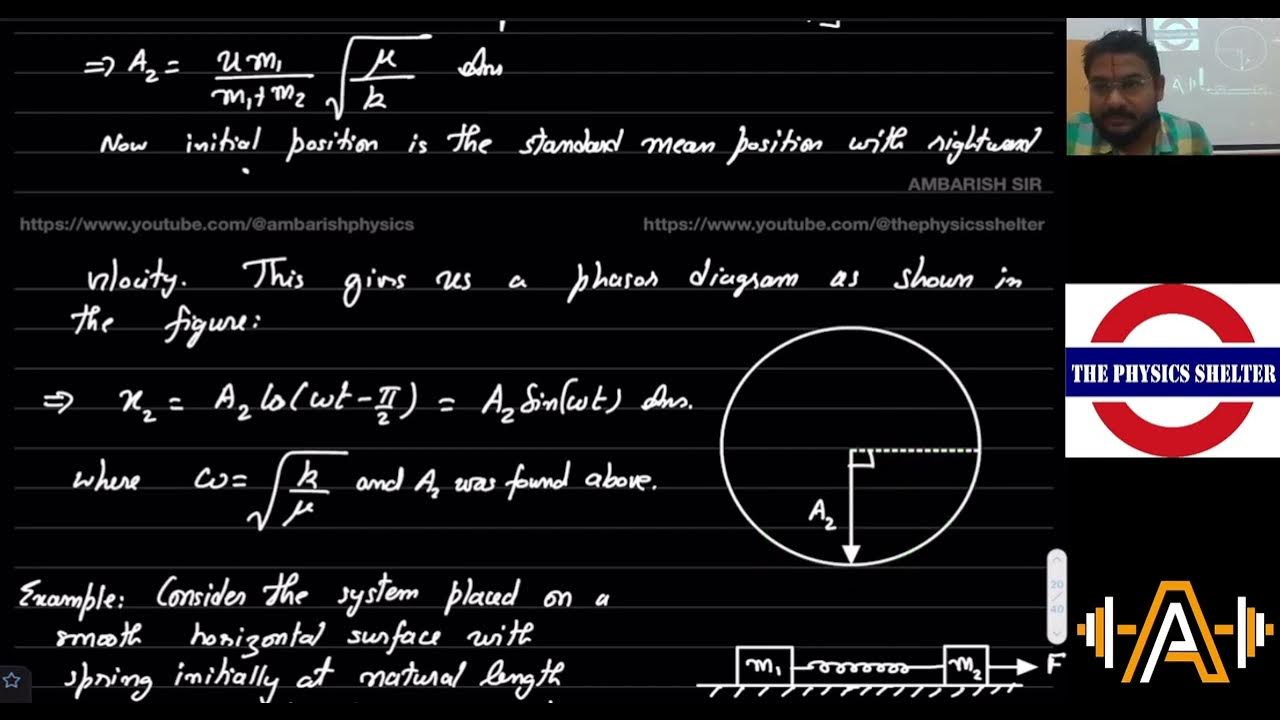 ⇒ A₂ = u m₁ / (m₁ + m₂) √(μ/k) Ans
Now initial position is the standard mean position with rightward
AMBARISH SIR
https://www.youtube.com/@ambarishphysics https://www.youtube.com/@thephysicsshelter
velocity. This gives us a phasor diagram as shown in
the figure:
⇒ x₂ = A₂ Cos(ωt - π/2) = A₂ Sin(ωt) Ans.
where ω = √(k/μ) and A₂ was found above.
A₂
Example: Consider the system placed on a
smooth horizontal surface with
spring initially at natural length
m₁ m₂ F
20
/
40
THE PHYSICS SHELTER
A